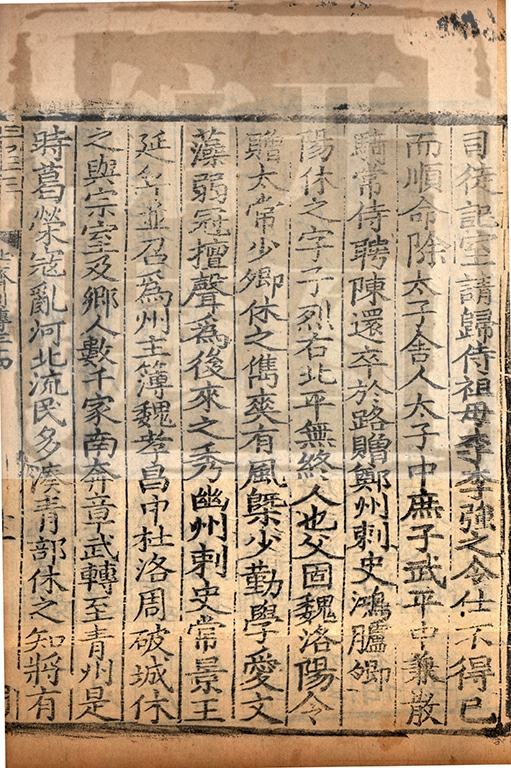 司徒記室請歸侍祖母李李強之令仕不得已
而順命除太子舍人太子中庶子武平中兼散
騎常侍聘陳還卒於路贈鄭州刺史鴻臚卿
陽休之字子烈右北平無終人也父固魏洛陽令
贈太常少卿休之儁爽有風槩少勤學愛文
藻弱冠擅聲爲後來之秀幽州刺史常景王
延年並召爲州主簿魏孝昌中杜洛周破城休
之與宗室及鄉人數千家南奔章武轉至青州是
時葛榮寇亂河北流民多湊青部休之知將有